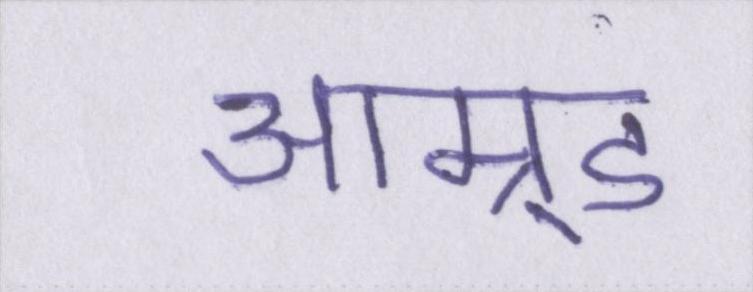 आम्र्ड